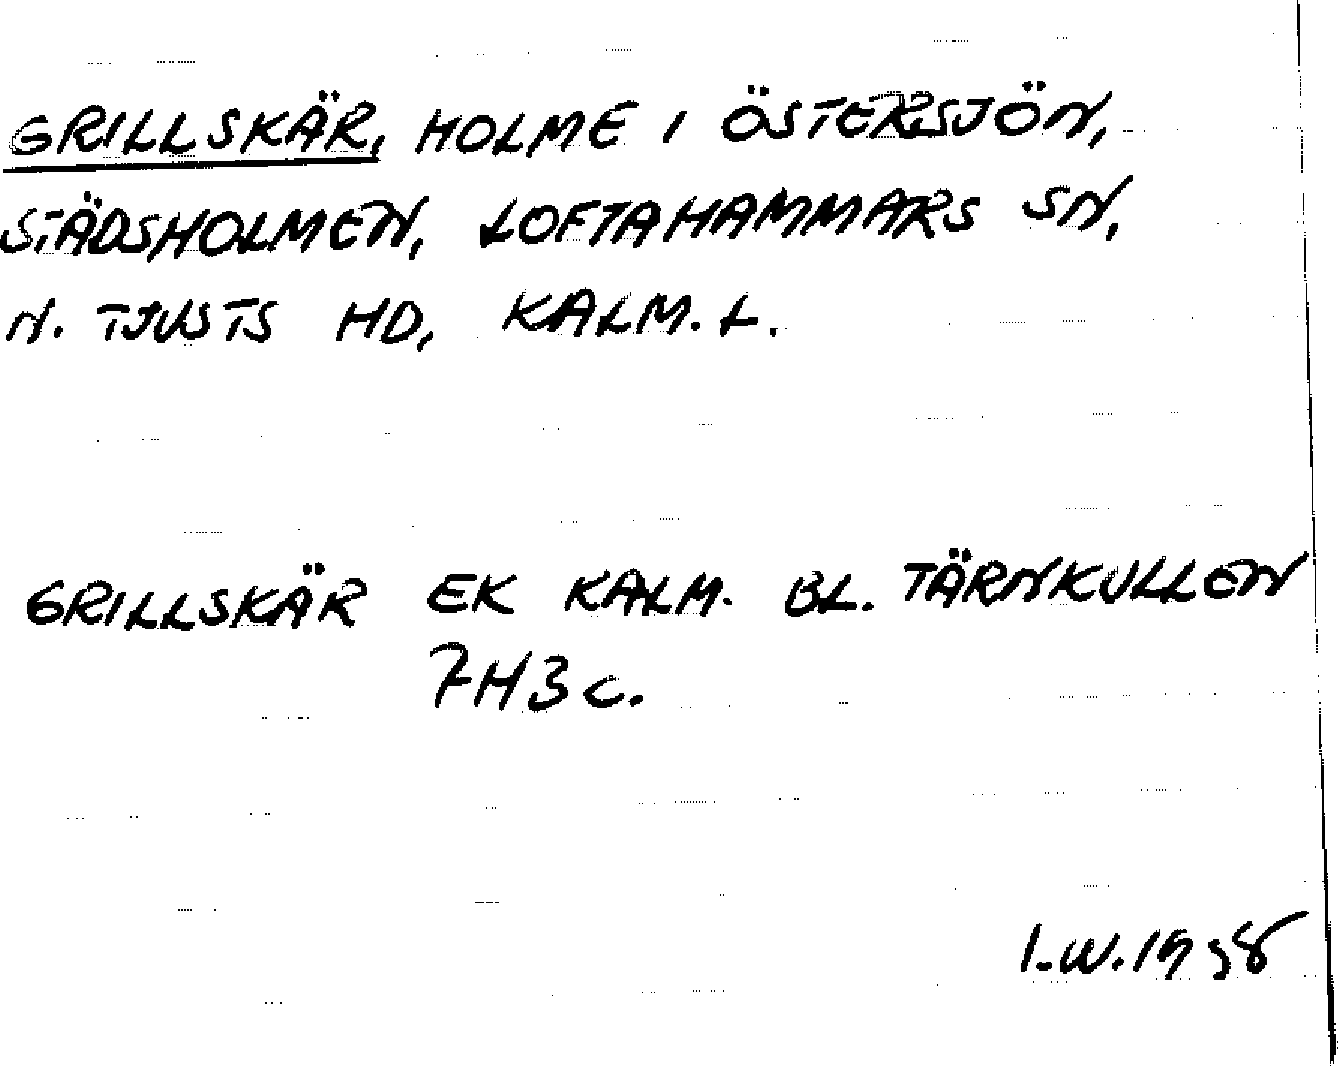 GRILLSKÄR, HOLME I ÖSTERSJÖN,
STÄDSHOLMEN, LOFTAHAMMARS SN,
N. TJUSTS HD, KALM. L.
GRILLSKÄR EK KALM. BL. TÄRNKULLEN
7H3c.
I.W. 1938